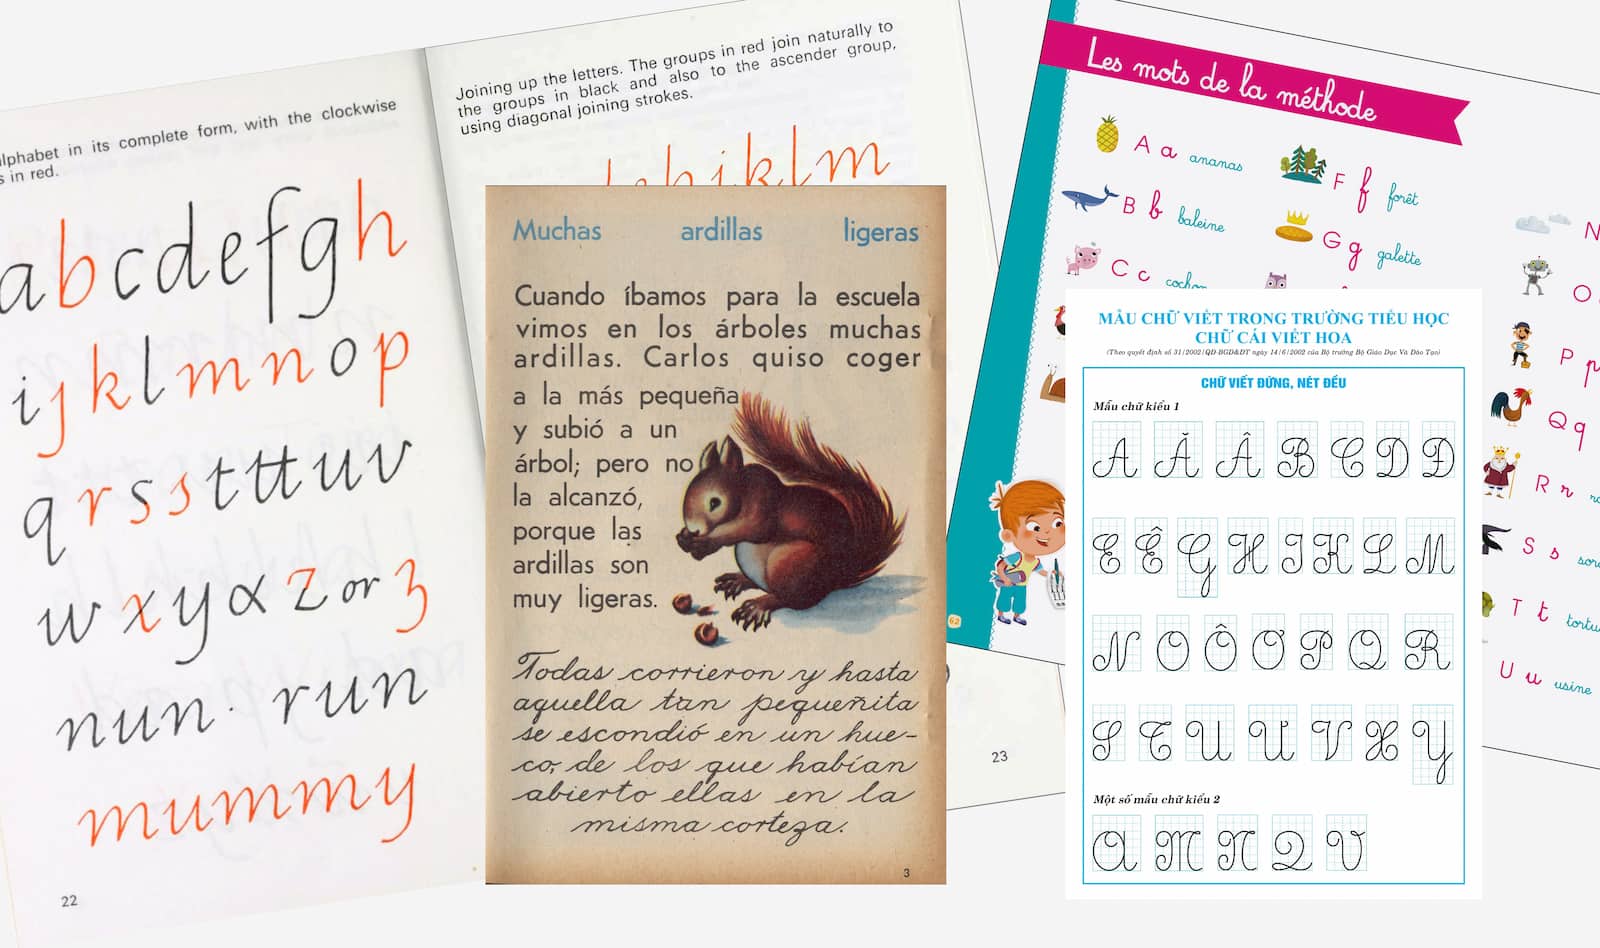 lphabet in its complete form, with the clockwise
s in red.
abcdefgh
ijklmnop
qrsstttuv
wxyαz or ʒ
nun · run
mummy
22
Joining up the letters. The groups in red join naturally to
the groups in black and also to the ascender group,
using diagonal joining strokes.
hijklm
23
Muchas ardillas ligeras
Cuando íbamos para la escuela
vimos en los árboles muchas
ardillas. Carlos quiso coger
a la más pequeña
y subió a un
árbol; pero no
la alcanzó,
porque las
ardillas son
muy ligeras.
Todas corrieron y hasta
aquella tan pequeñita
se escondió en un hue-
co, de los que habían
abierto ellas en la
misma corteza.
3
Les mots de la méthode
A a ananas
B b baleine
C c cochon
F f forêt
G g galette
N
O
P p
Q q
R r
S s
T t tortu
U u usine
62
MẪU CHỮ VIẾT TRONG TRƯỜNG TIỂU HỌC
CHỮ CÁI VIẾT HOA
(Theo quyết định số 31/2002/QĐ-BGD&ĐT ngày 14/6/2002 của Bộ trưởng Bộ Giáo Dục Và Đào Tạo)
CHỮ VIẾT ĐỨNG, NÉT ĐỀU
Mẫu chữ kiểu 1
A Ă Â B C D Đ
E Ê G H I K L M
N O Ô Ơ P Q R
S T U Ư V X Y
Một số mẫu chữ kiểu 2
A M N Q V